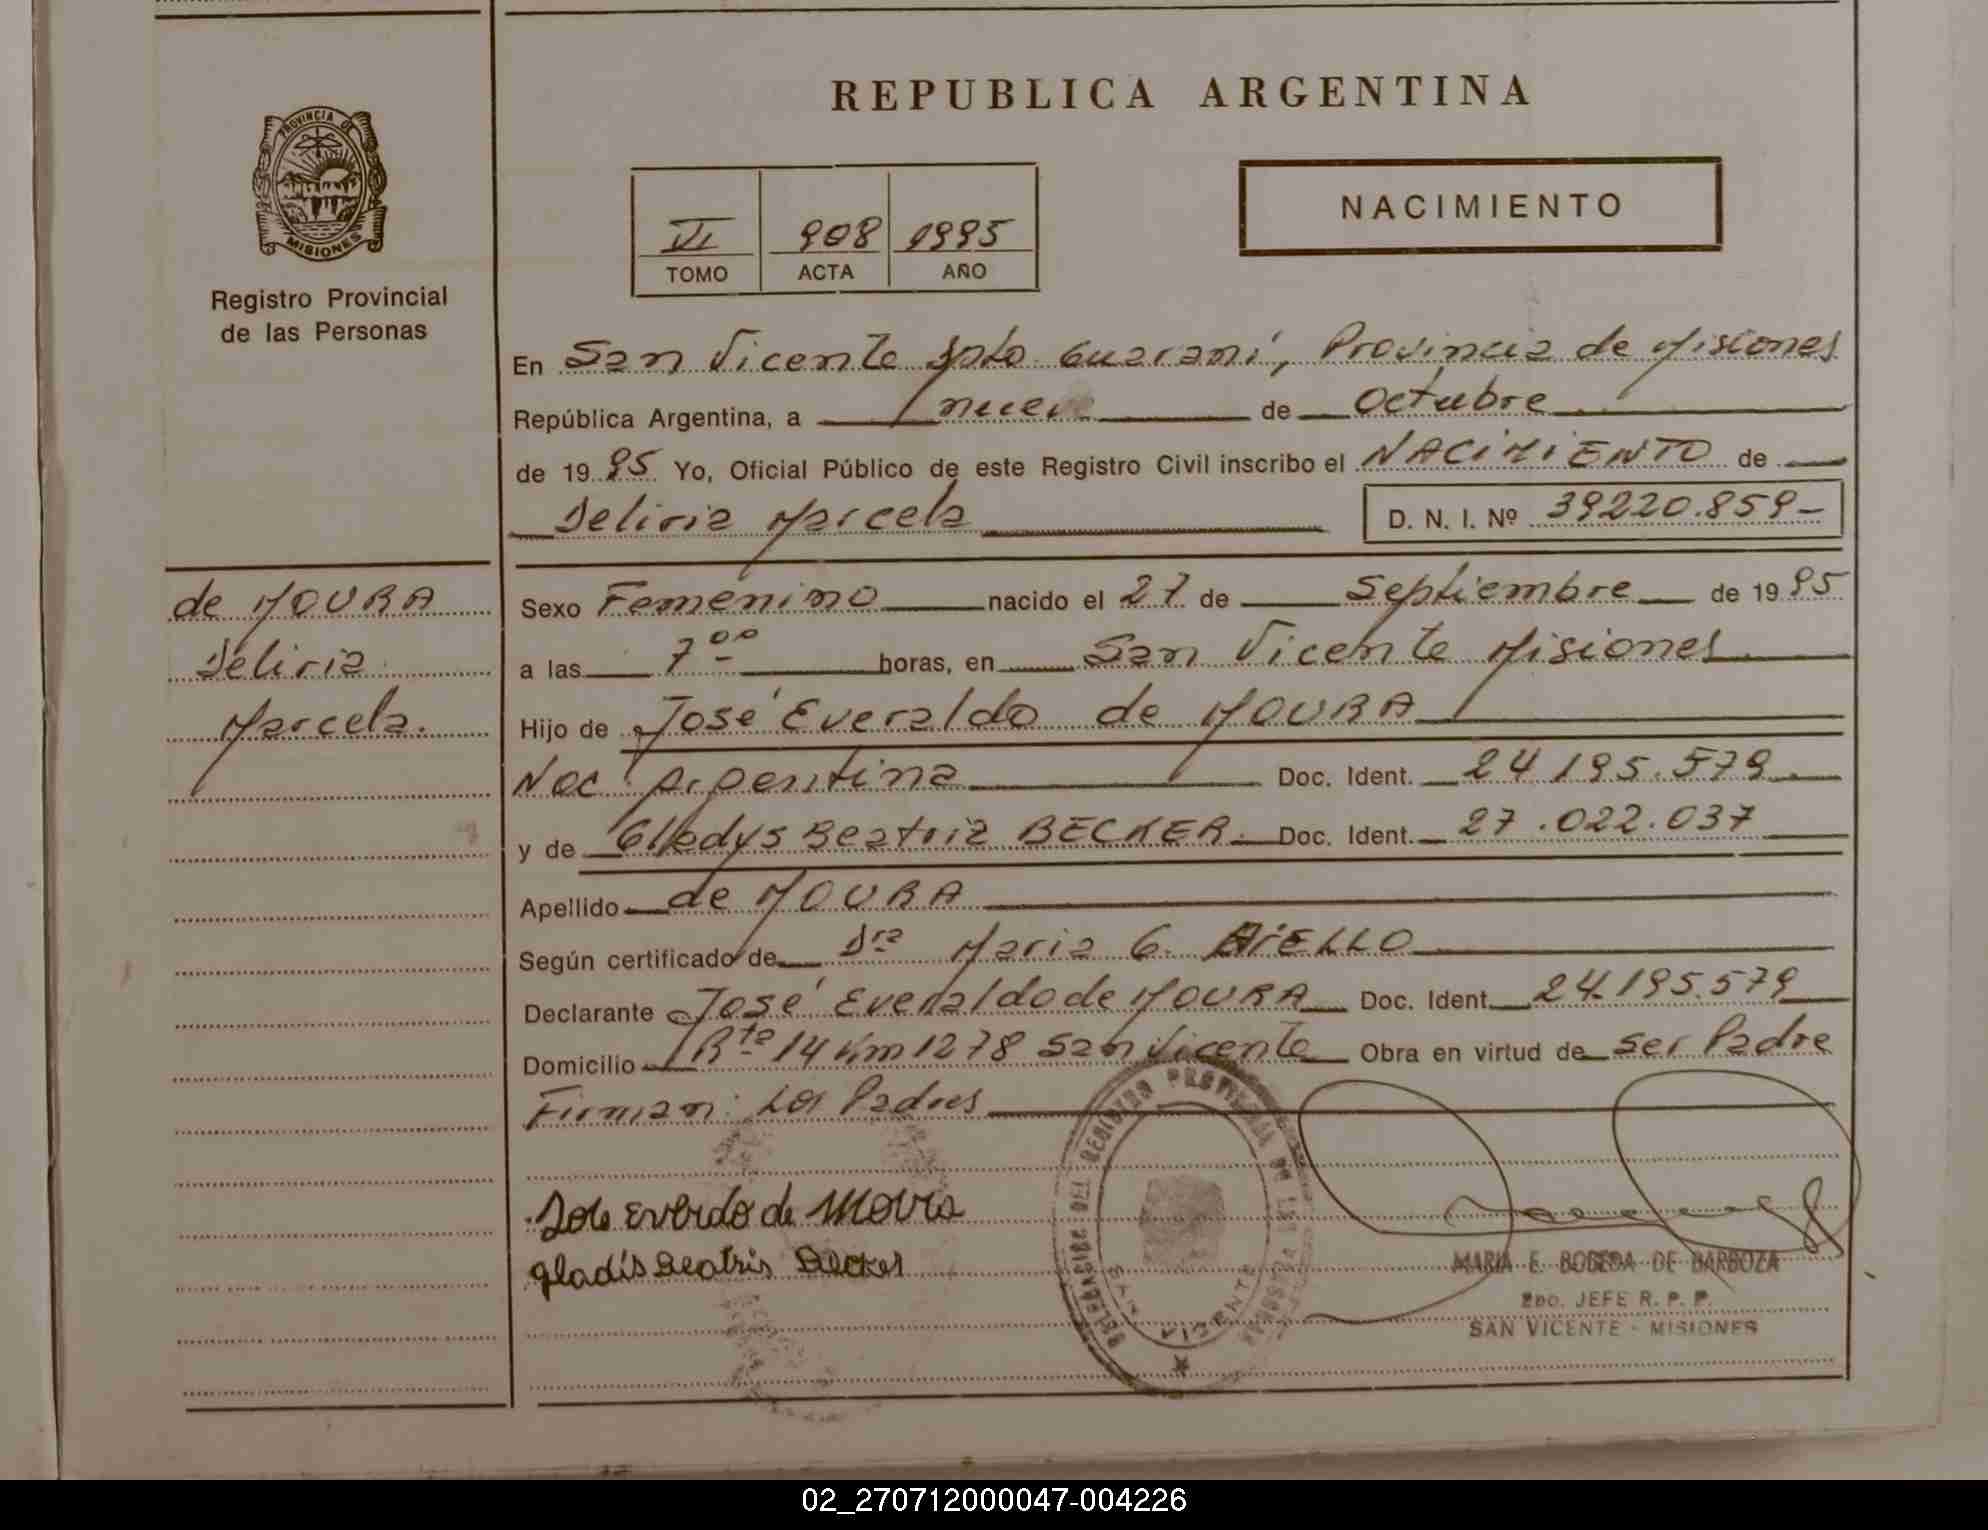 REPUBLICA ARGENTINA
PROVINCIA DE MISIONES
Registro Provincial
de las Personas
VI 908 1995
TOMO ACTA AÑO
NACIMIENTO
En San Vicente Dpto. Guaraní, Provincia de Misiones
República Argentina, a nueve de Octubre
de 1995 Yo, Oficial Público de este Registro Civil inscribo el NACIMIENTO de
Deliria Marcela D. N. I. Nº 39220.859-
de MOURA
Deliria
Marcela.
Sexo Femenino nacido el 27 de Septiembre de 1995
a las 7 00 horas, en San Vicente Misiones
Hijo de José Everaldo de MOURA
Nac Argentina Doc. Ident. 24 195.579
y de Gladys Beatriz BECKER. Doc. Ident. 27.022.037
Apellido de MOURA
Según certificado de Dra Maria G. AiELLO
Declarante José Everaldo de MOURA Doc. Ident. 24.195.579
Domicilio Rta 14 Km 1278 San Vicente Obra en virtud de ser Padre
Firman: Los Padres
Jose Everldo de Moura
gladis Beatris Becker
DELEGACION DEL REGISTRO PROVINCIAL DE LAS PERSONAS
SAN VICENTE
MARIA E. BOBEDA DE BARBOZA
2DO. JEFE R. P. P.
SAN VICENTE - MISIONES
02_270712000047-004226